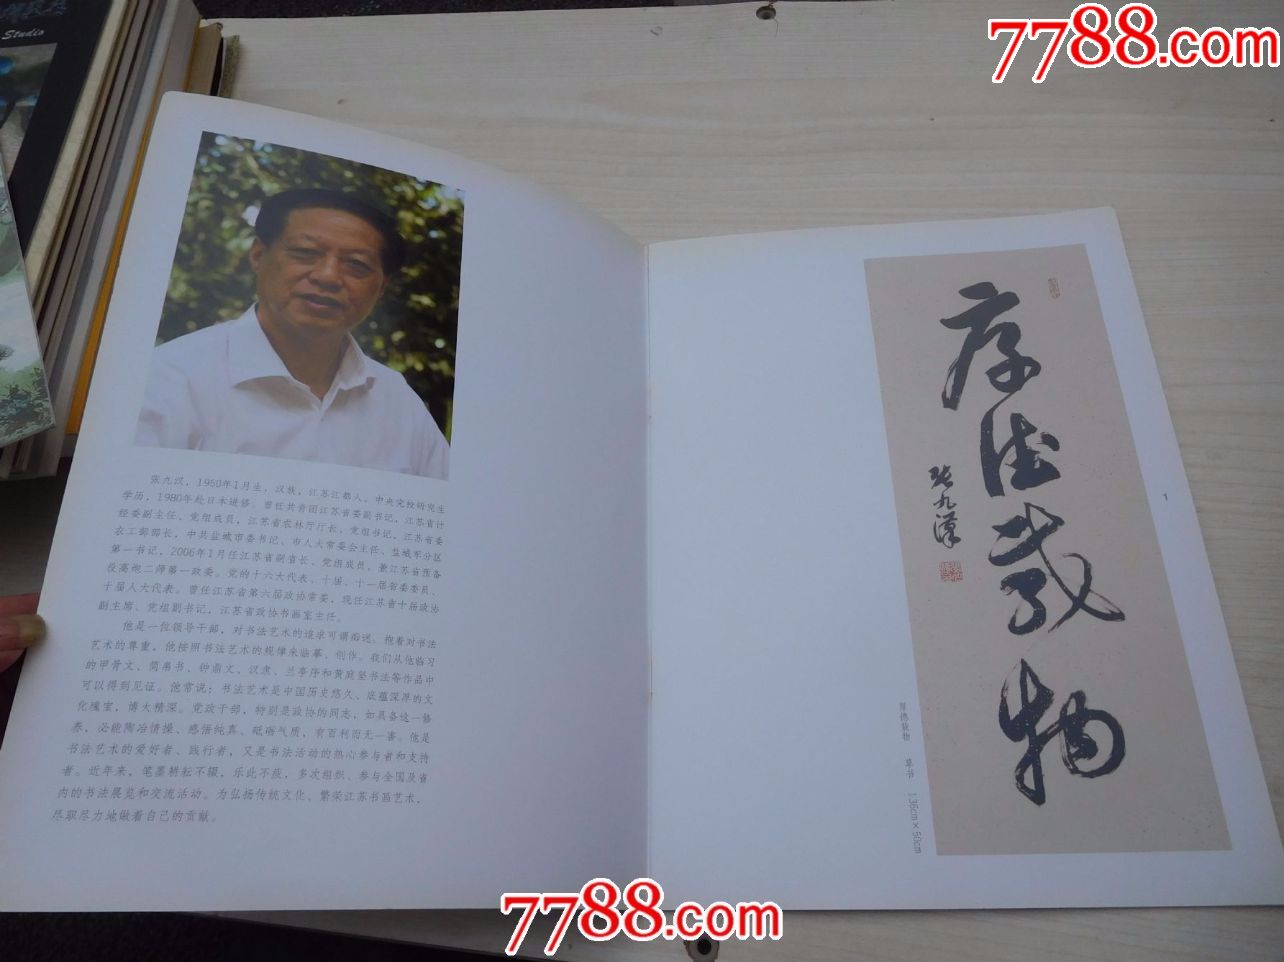 7788.com
Studio
张九汉，1950年1月生，汉族，江苏江都人。中央党校研究生
学历，1980年赴日本进修。曾任共青团江苏省委副书记，江苏省计
经委副主任、党组成员，江苏省农林厅厅长、党组书记，江苏省委
农工部部长，中共盐城市委书记、市人大常委会主任、盐城军分区
第一书记，2006年1月任江苏省副省长、党组成员，兼江苏省预备
役高炮二师第一政委。党的十六大代表、十届、十一届省委委员、
十届人大代表。曾任江苏省第六届政协常委，现任江苏省十届政协
副主席、党组副书记，江苏省政协书画室主任。
他是一位领导干部，对书法艺术的追求可谓痴迷。抱着对书法
艺术的尊重，他按照书法艺术的规律来临摹、创作。我们从他临习
的甲骨文、简帛书、钟鼎文、汉隶、兰亭序和黄庭坚书法等作品中
可以得到见证。他常说：书法艺术是中国历史悠久、底蕴深厚的文
化瑰宝，博大精深。党政干部，特别是政协的同志，如具备这一修
养，必能陶冶情操、感悟纯真、砥砺气质，有百利而无一害。他是
书法艺术的爱好者、践行者，又是书法活动的热心参与者和支持
者。近年来，笔墨耕耘不辍，乐此不疲，多次组织、参与全国及省
内的书法展览和交流活动。为弘扬传统文化、繁荣江苏书画艺术，
尽职尽力地做着自己的贡献。
厚德载物
张九漢
厚德载物 草书 136cm×50cm
1
7788.com